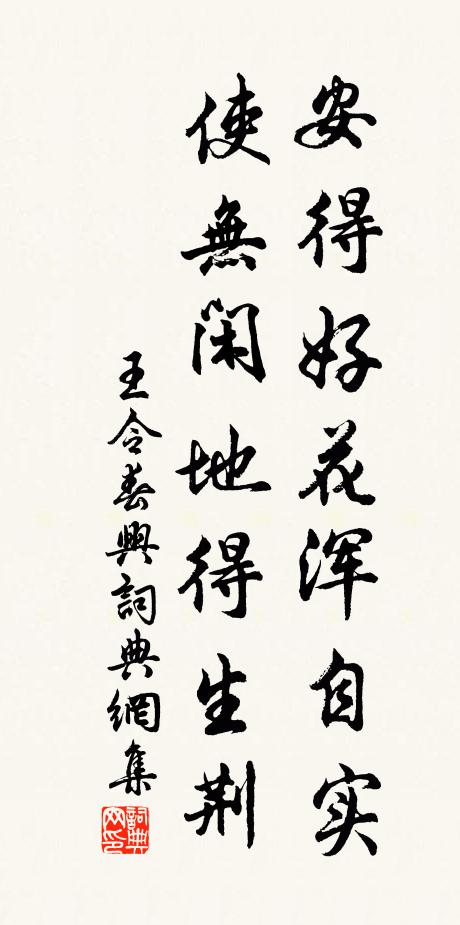 安得好花浑自实
使無闲地得生荆
王令春興詞典網集
詞典网印